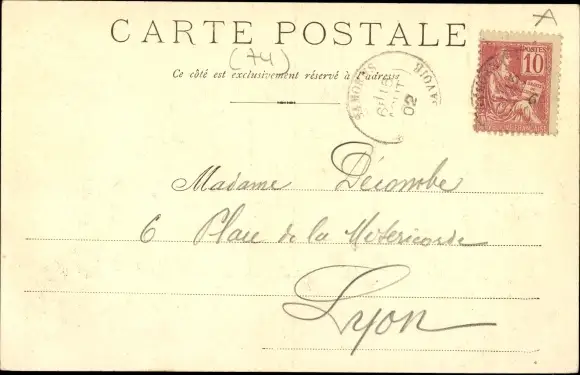 CARTE POSTALE
A
(74)
Ce côté est exclusivement réservé à l'adresse
SAMOËNS
SAVOIE
15
AOUT
02
POSTES
10
Madame Décombe
6 Place de la Miséricorde
Lyon